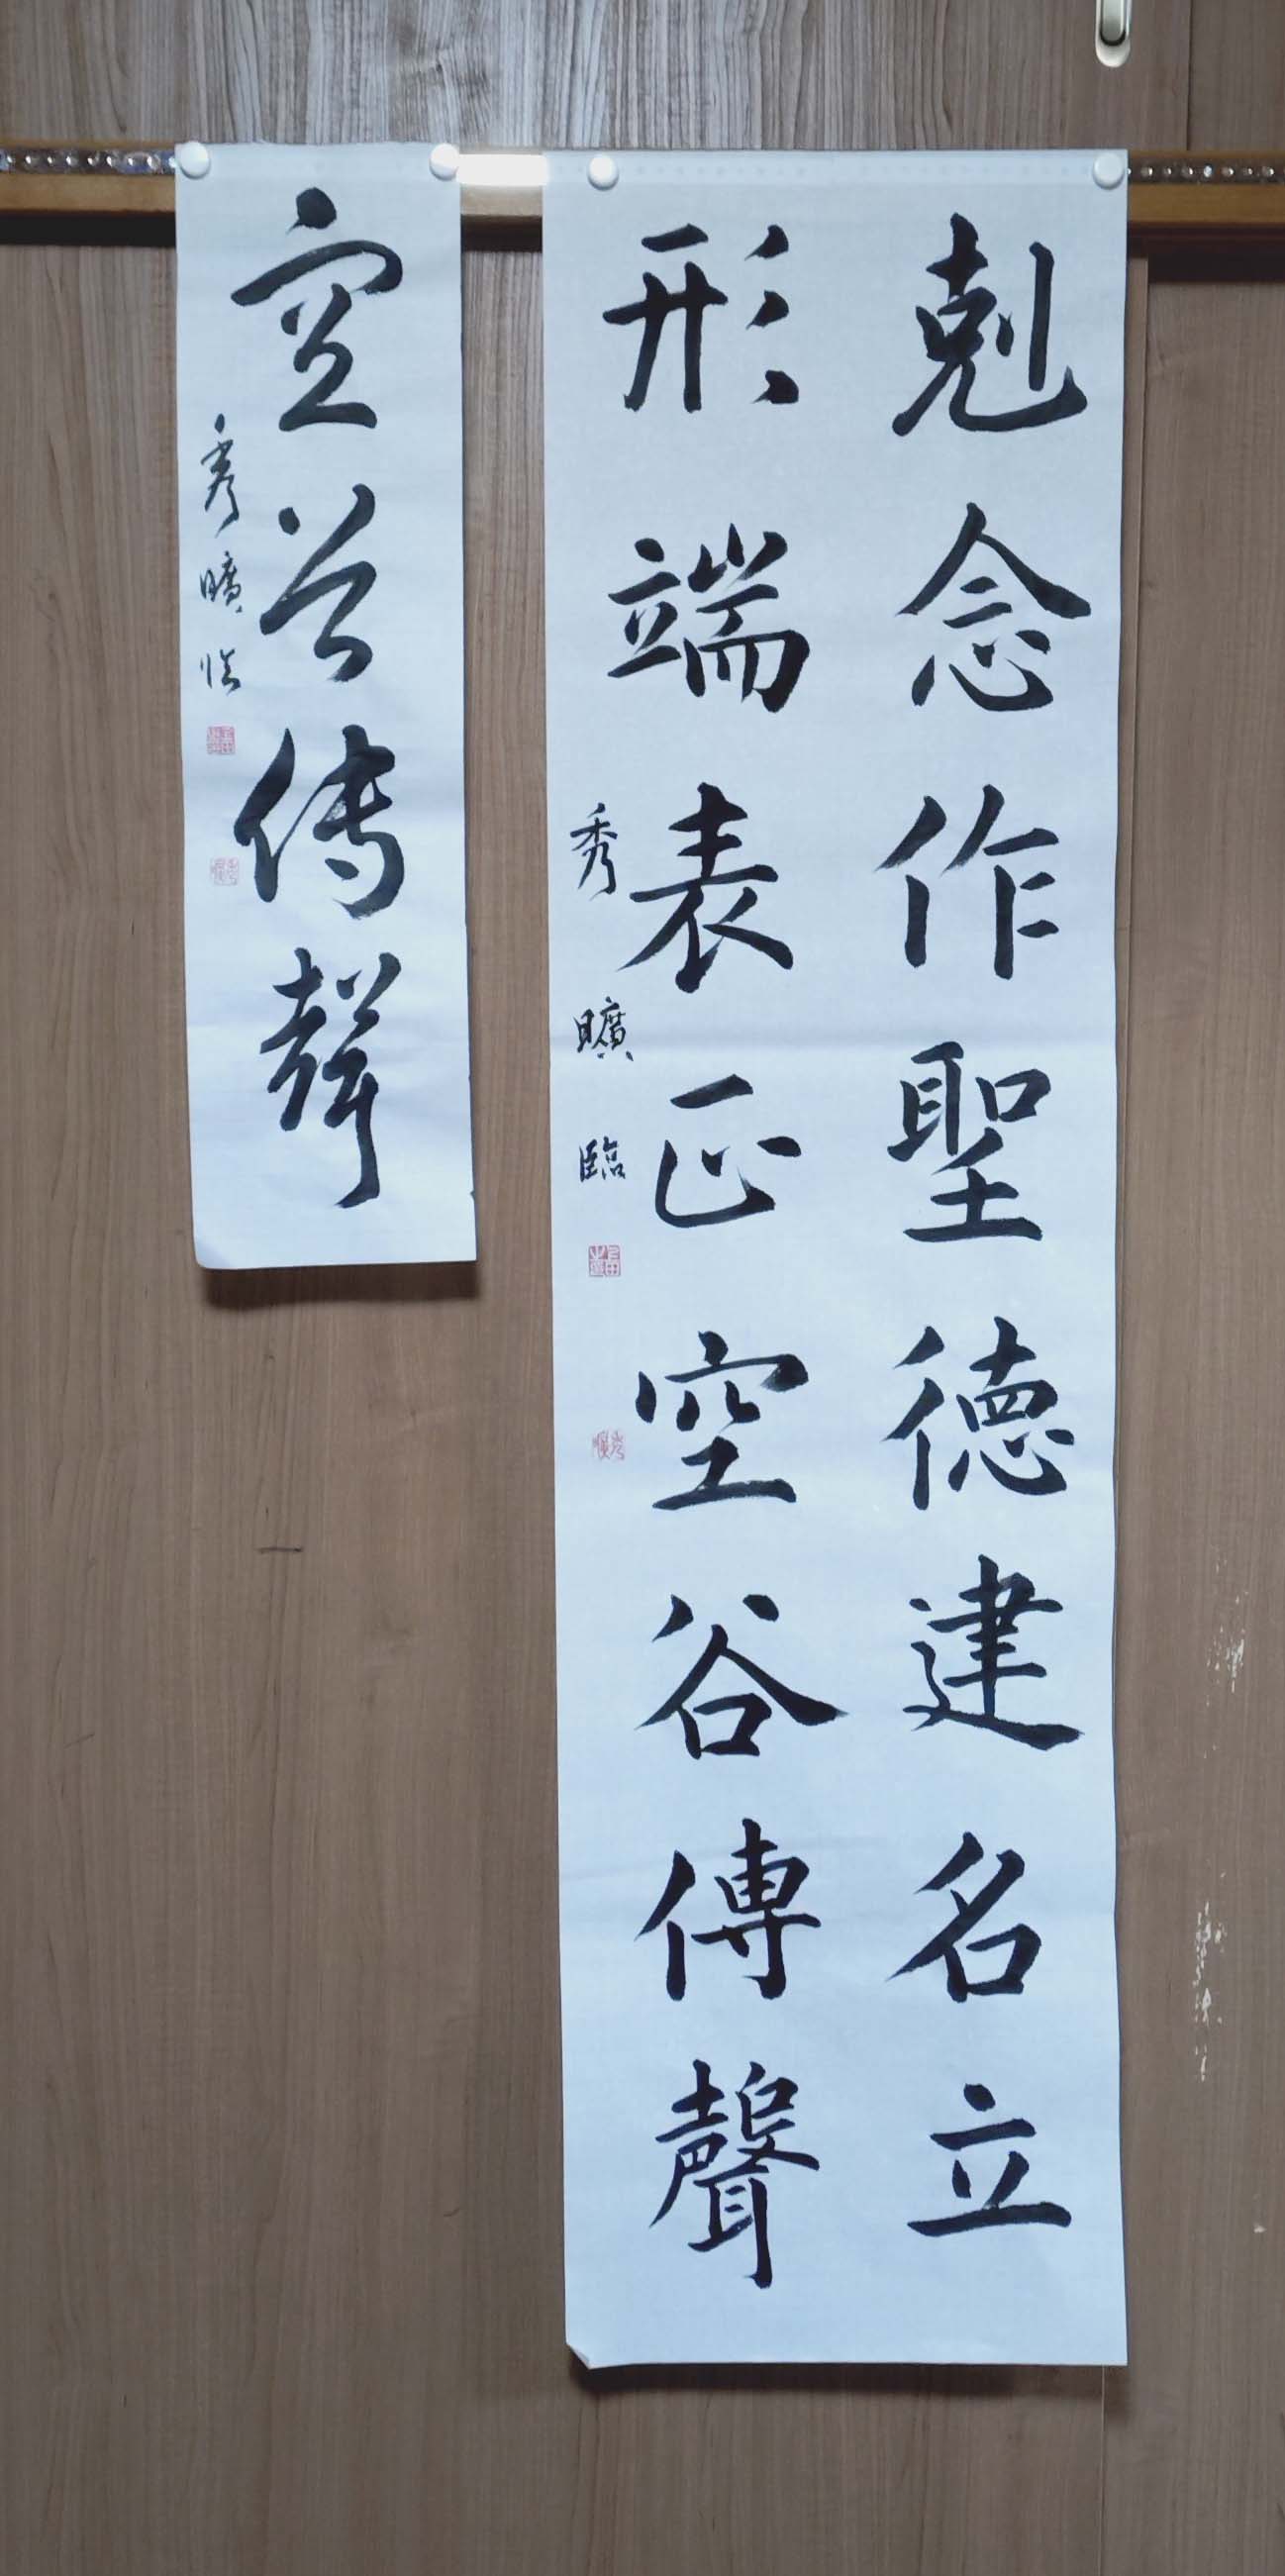 剋念作聖德建名立
形端表正空谷傳聲
秀曠臨
空谷傳聲
秀曠臨